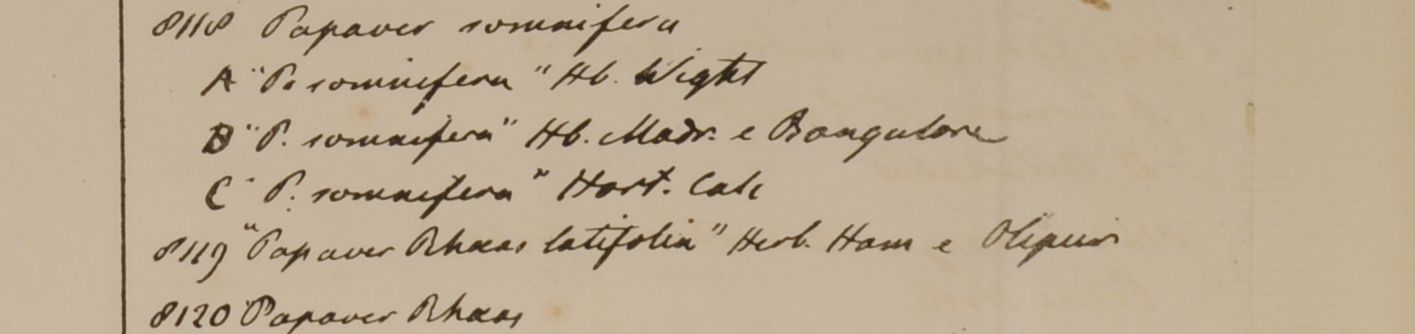 8118 Papaver somnifera
A "P. somnifera" Hb. Wight
B "P. somnifera" Hb. Madr. e Bangalore
C "P. somnifera" Hort. Calc
8119 "Papaver Rhaeas latifolia" Herb. Ham e
8120 Papaver Rhaeas